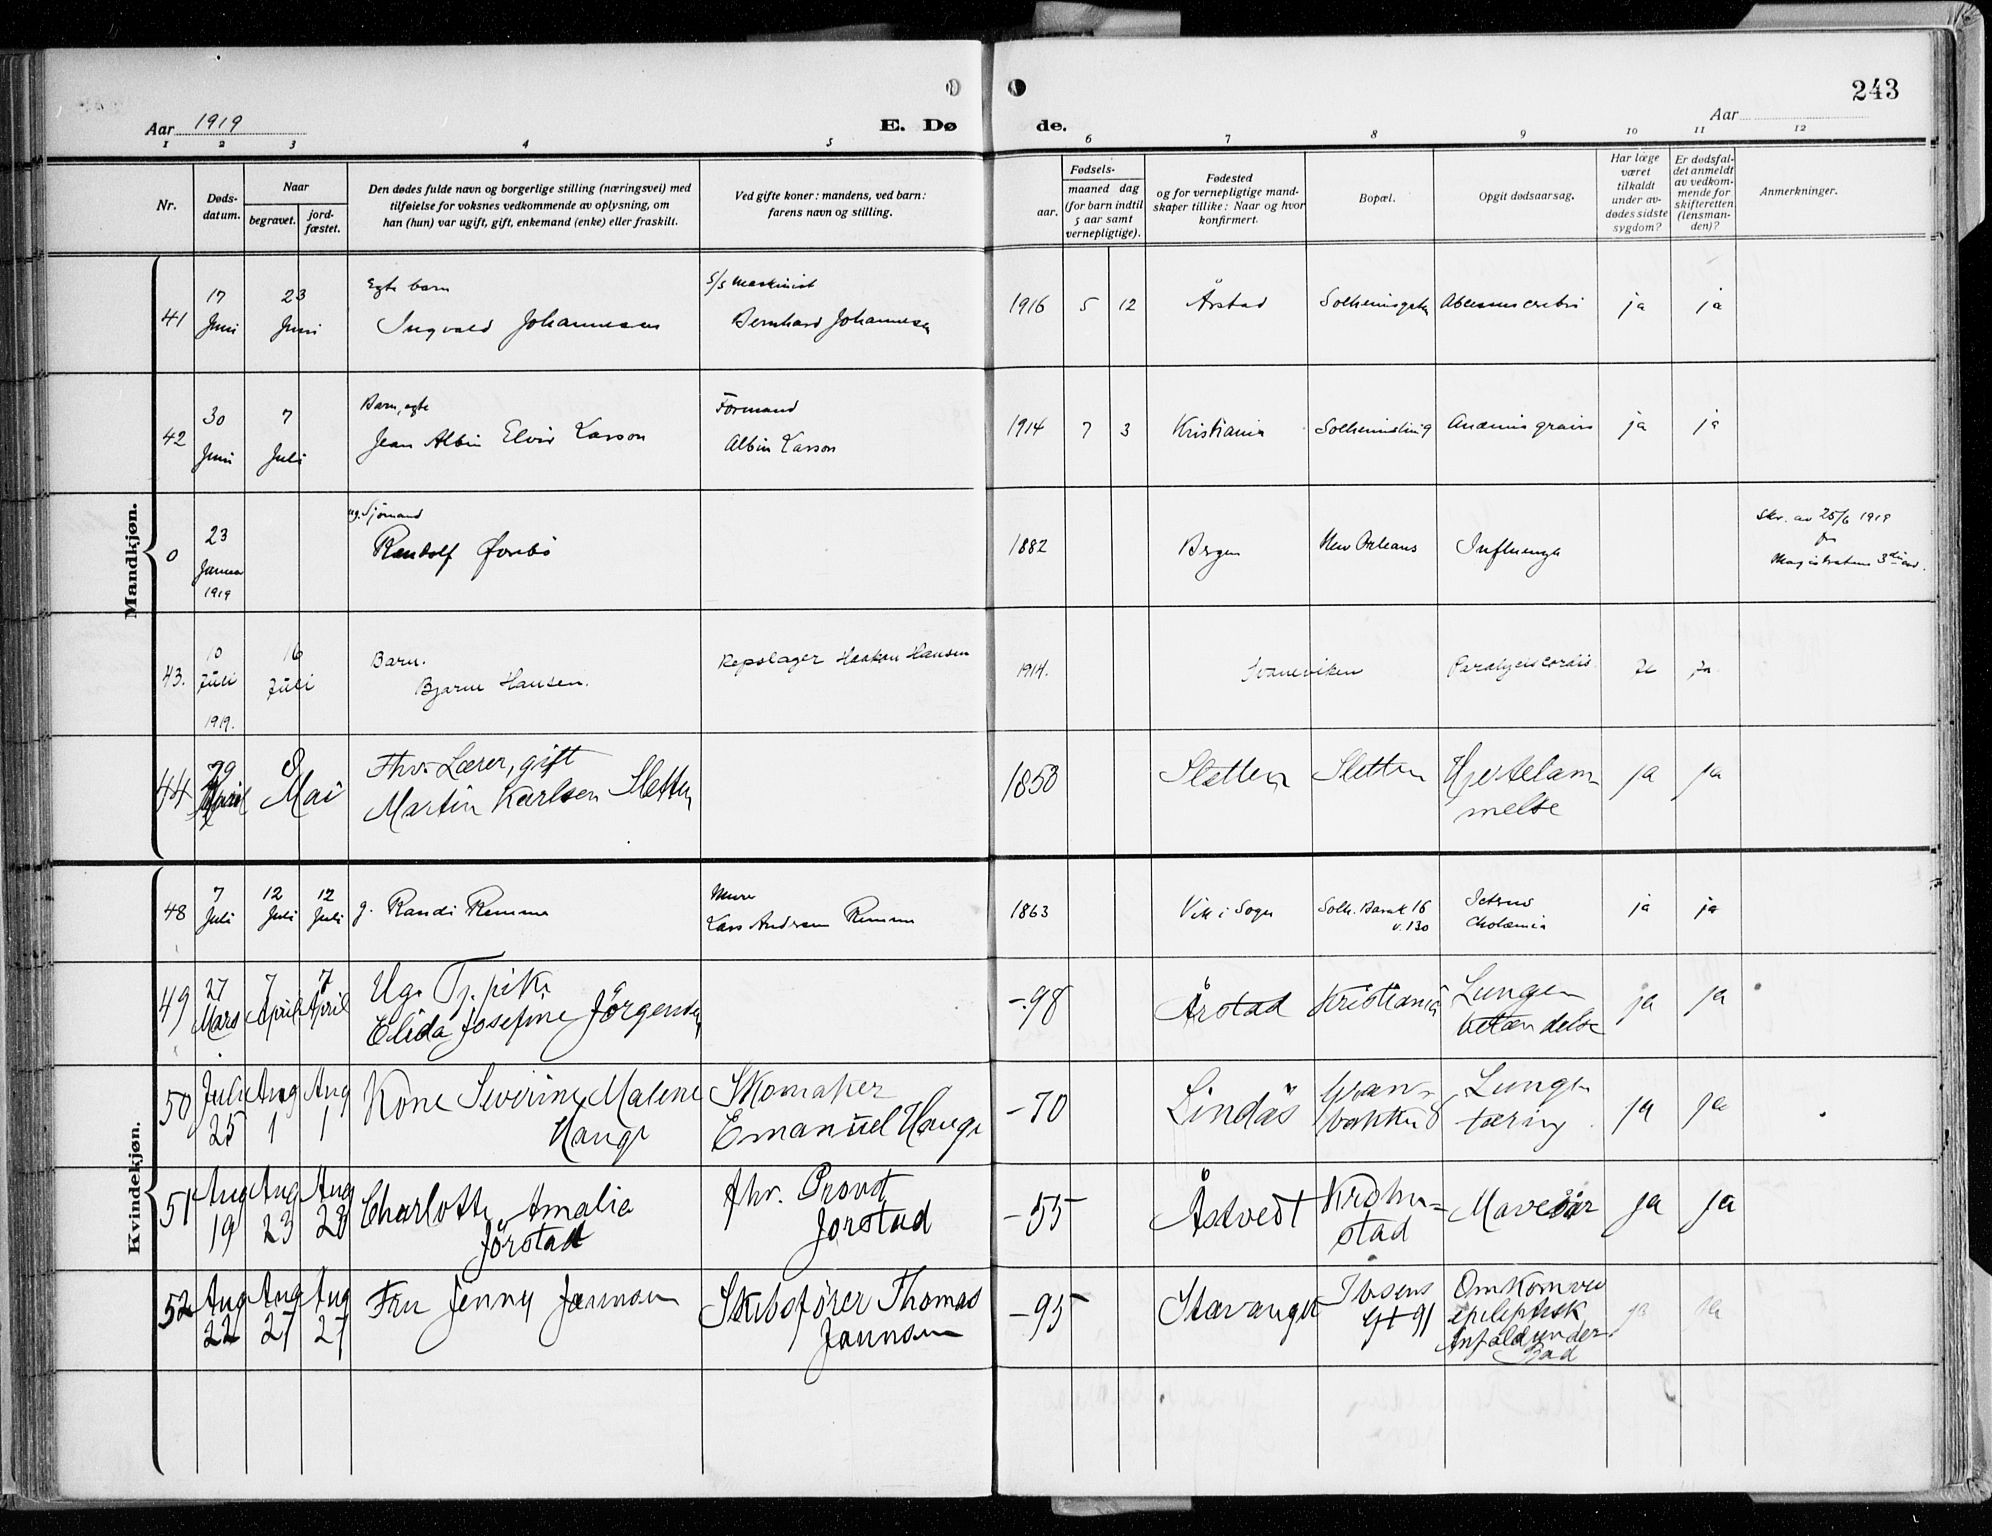 243
Aar 1919
E. Dø de.
Aar
1 2 3 4 5 6 7 8 9 10 11 12
Nr.
Døds-datum.
Naar
begravet.
jord-fæstet.
Den dødes fulde navn og borgerlige stilling (næringsvei) med
tilføielse for voksnes vedkommende av oplysning, om
han (hun) var ugift, gift, enkemand (enke) eller fraskilt.
Ved gifte koner: mandens, ved barn:
farens navn og stilling.
Fødsels-
aar.
maaned dag
(for barn indtil
5 aar samt
vernepligtige).
Fødested
og for vernepligtige mand-
skaper tillike: Naar og hvor
konfirmert.
Bopæl.
Opgit dødsaarsag.
Har læge
været
tilkaldt
under av-
dødes sidste
sygdom?
Er dødsfal-
det anmeldt
av vedkom-
mende for
skifteretten
(lensman-
den)?
Anmerkninger.
Mandkjøn.
41 17 Juni 23 Juni Egte barn Ingvald Johannessen S/S Maskinist Bernhard Johannesen 1916 5 12 Årstad ja ja
42 30 Juni 7 Juli Barn, egte Jean Albin Elvir Larson Formand Albin Larson 1914 7 3 Kristiania ja ja
0 23 Januar 1919 ug. Sjømand Randolf 1882 Bergen New Orleans Influenza Skr. av 25/6 1919 fra Magistratens 3die avd.
43. 10 Juli 1919. 16 Juli Barn. Bjarne Hansen. Repslager Haakon Hansen 1914. Paralysis cordis. Ja Ja
44 29 April 8 Mai Fhv. Lærer, gift Martin Karlsen Sletten 1853 Sletten Sletten Hjertelam- melse ja ja
Kvindekjøn.
48 7 Juli 12 Juli 12 Juli g. Randi Remme Murer Lars Andersen Remme 1863 Vik i Sogn Solh. Barak 16 v. 130 Icterus Cholæmia ja ja
49 27 Mars 7 April 7 April Ug. Tj. pike Elida Josefine Jörgensen -98 Årstad Kristiania Lungen betændelse ja ja
50 Juli 25 Aug 1 Aug 1 Kone Severine Malene Hauge Skomaker Emanuel Hauge -70 Lindås Lunge tæring ja ja
51 Aug 19 Aug 23 Aug 23 Charlotte Amalia Jörstad fhv. Provst Jorstad -55 Åstvedt Krohn- stad Mavesår ja ja
52 Aug 22 Aug 27 Aug 27 Fru Jenny Jannsen Skibsfører Thomas Jannsen -95 Stavanger Ibsens Gt 91 Omkom ved epileptisk Anfald under Bad ja ja